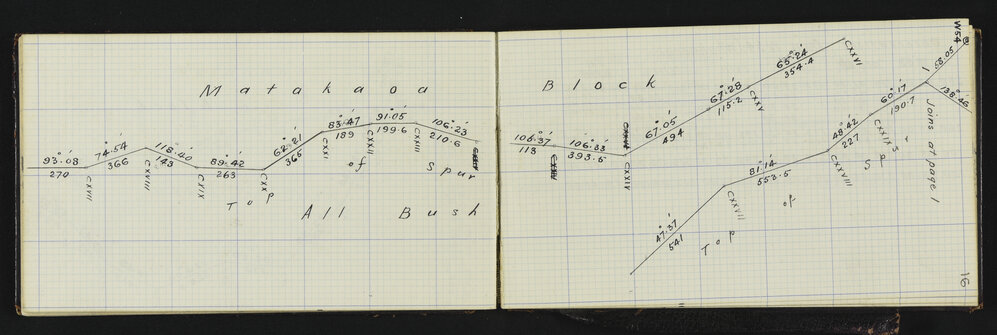 Matakaoa Block
93°08'
270
CXVII
74°54'
366
CXVIII
118°40'
143
CXIX
89°42'
263
CXX
62°21'
365
CXXI
83°47'
189
CXXII
91°05'
199.6
CXXIII
106°23'
210.6
Top of Spur
All Bush
106°37'
113
106°33'
393.6
CXXIV
67°05'
494
67°28'
115.2
CXXV
65°24'
354.4
CXXVI
47°37'
541
CXXVII
81°14'
553.5
CXXVIII
48°42'
227
CXXIX
60°17'
190.7
I
58.05
W54
138°46'
Top of Sp
Joins at page 1
16